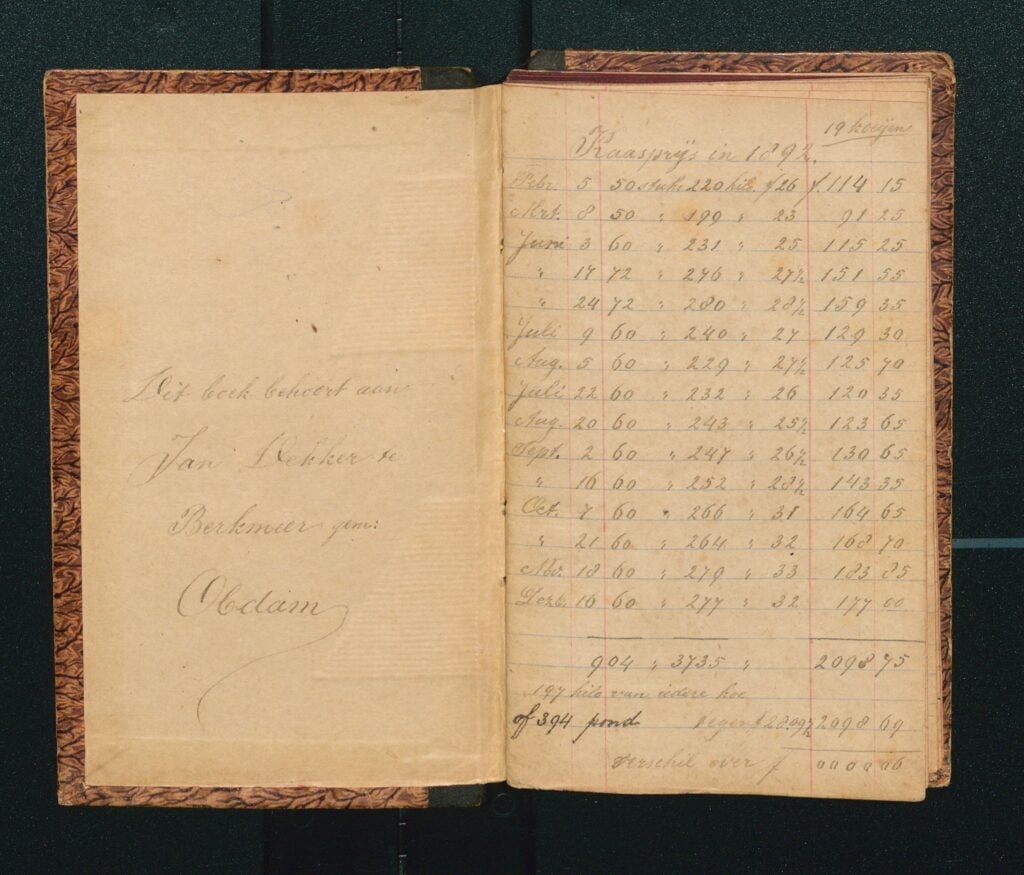 Dit boek behoort aan
Jan Dekker te
Berkmeer gem:
Obdam
19 koeijen
Kaasprijs in 1892.
Febr. 5 50 stuks 220 kilo f 26 f. 114 15
Mrt. 8 50 " 199 " 23 91 25
Juni 3 60 " 231 " 25 115 25
" 17 72 " 276 " 27½ 151 55
" 24 72 " 280 " 28½ 159 35
Juli 9 60 " 240 " 27 129 30
Aug. 5 60 " 229 " 27½ 125 70
Juli 22 60 " 232 " 26 120 35
Aug. 20 60 " 243 " 25½ 123 65
Sept. 2 60 " 247 " 26½ 130 65
" 16 60 " 252 " 28½ 143 35
Oct. 7 60 " 266 " 31 164 65
" 21 60 " 264 " 32 168 70
Nov. 18 60 " 279 " 33 183 85
Dezb. 16 60 " 277 " 32 177 00
904 " 3735 " 2098 75
197 kilo van iedere koe
of 394 pond tegen f 28.09½ 2098 69
Verschil over f 00 00 06